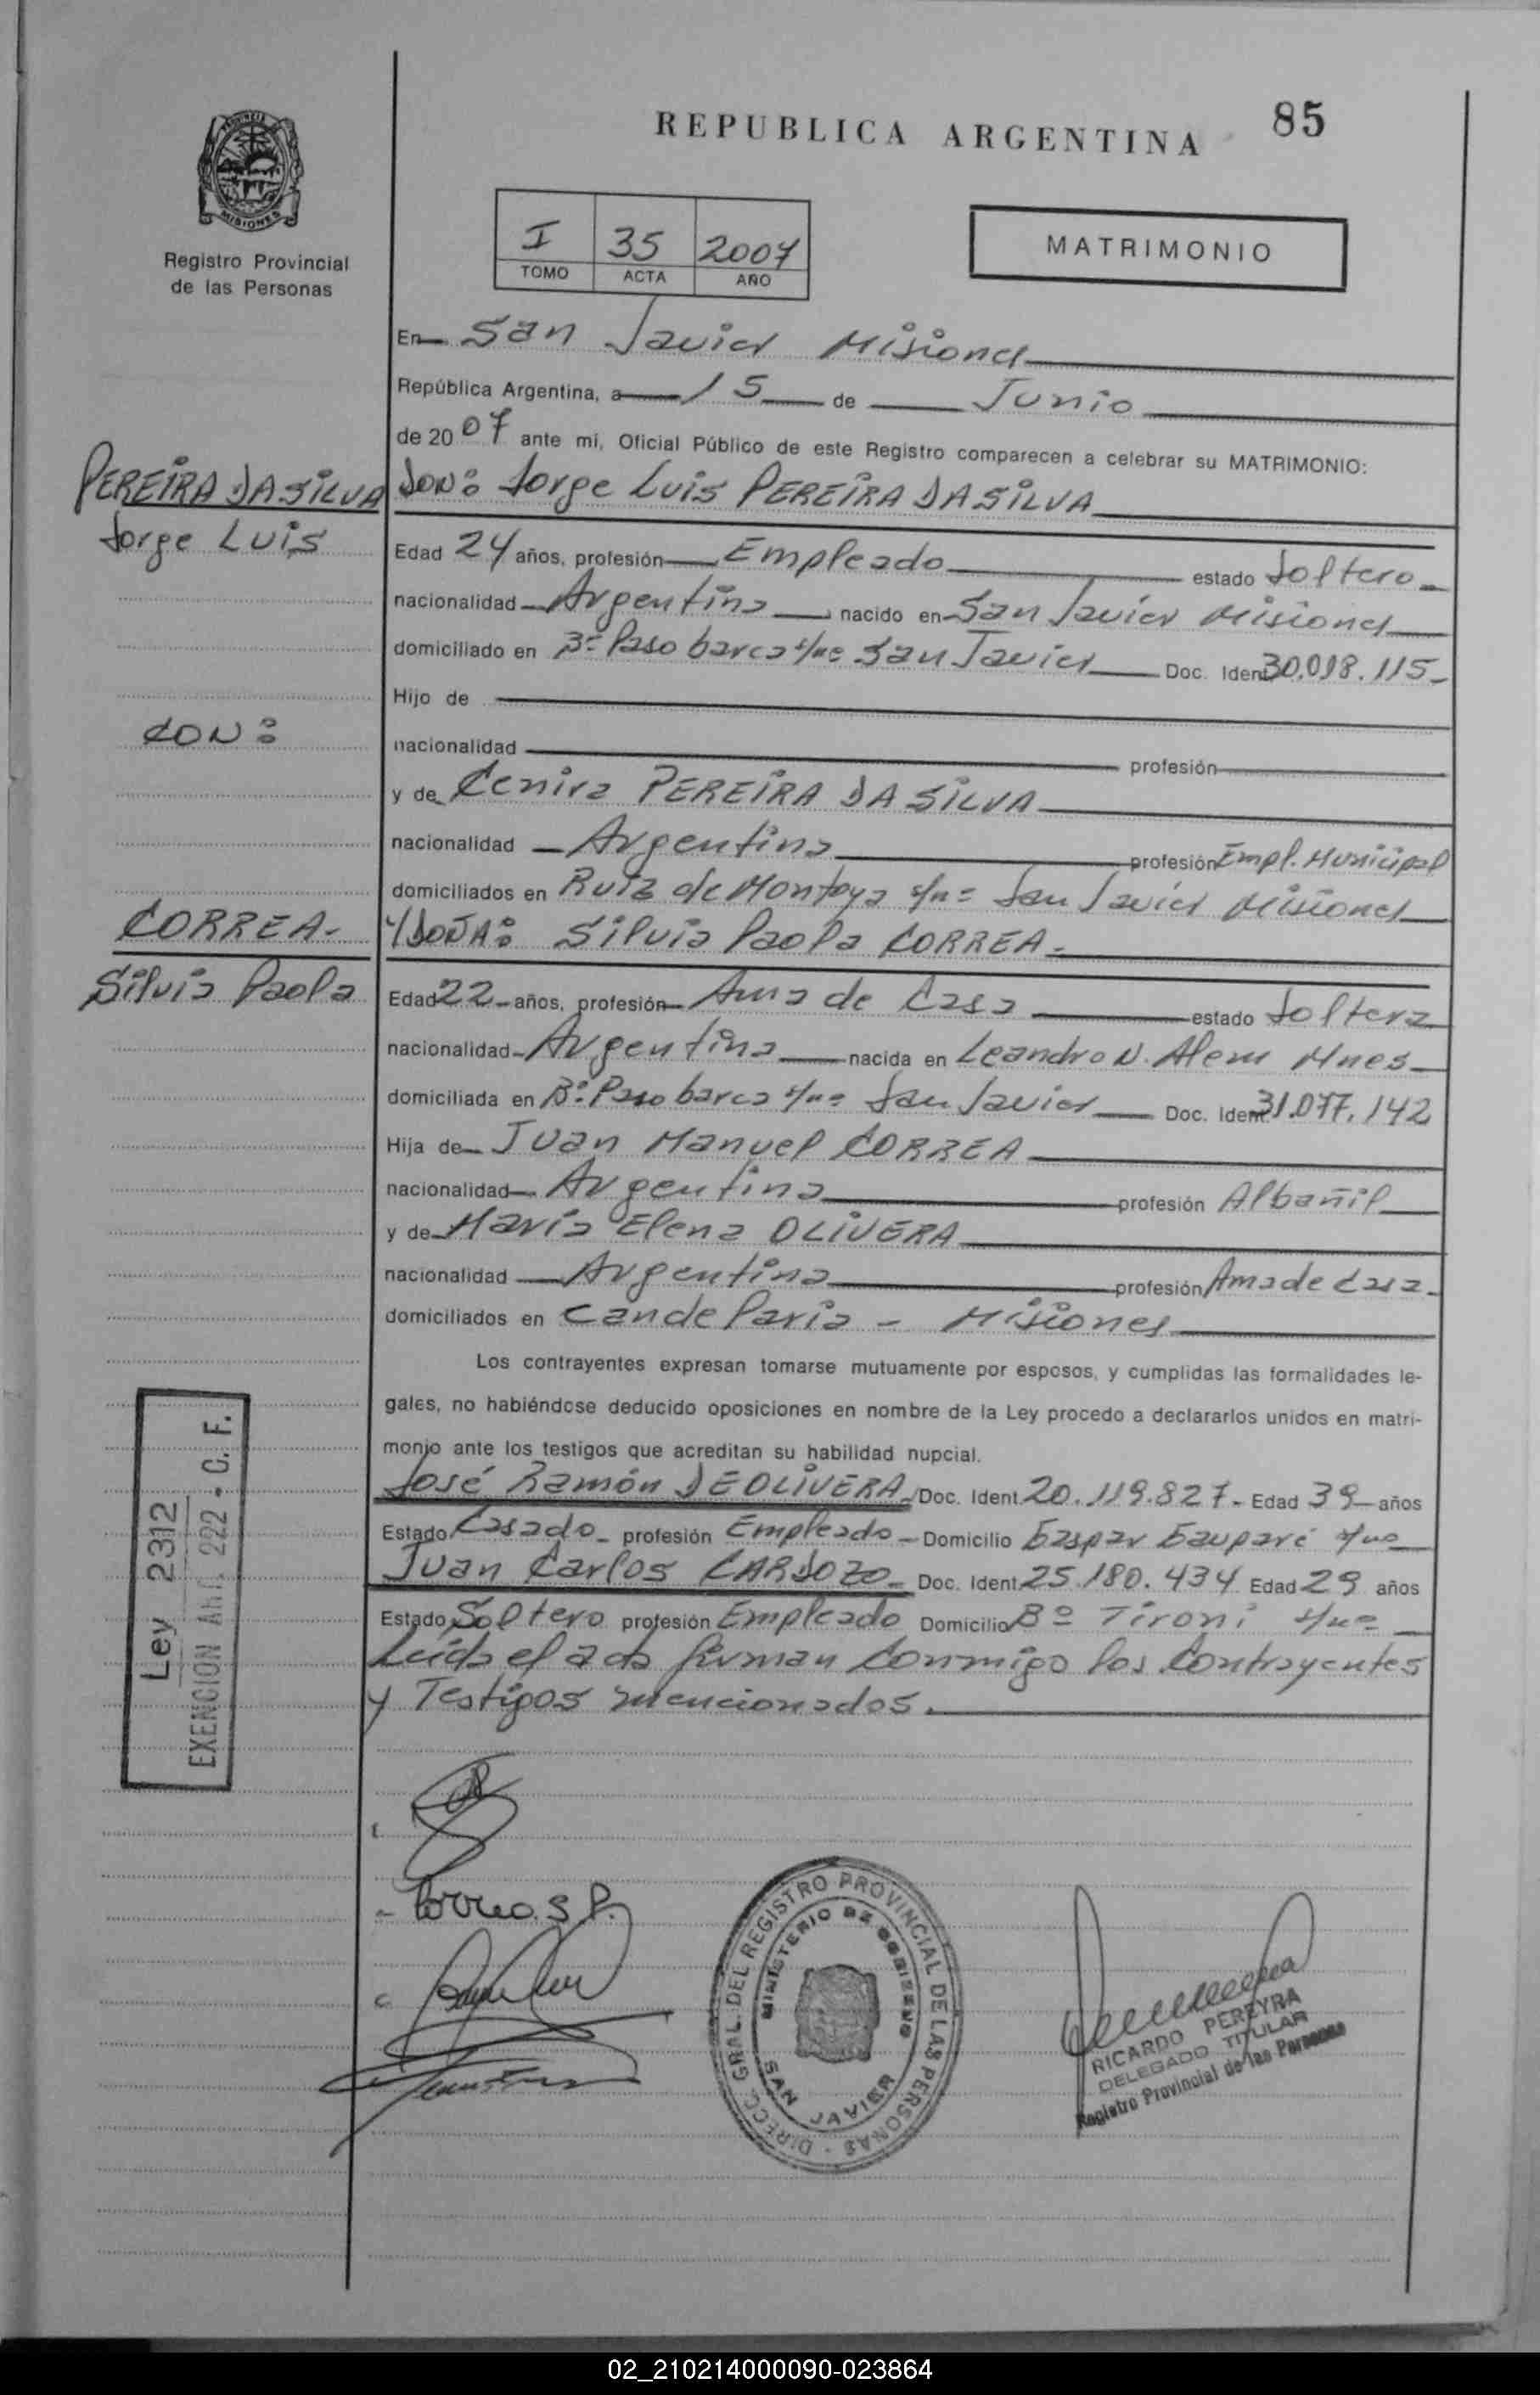 REPUBLICA ARGENTINA 85
PROVINCIA
MISIONES
Registro Provincial
de las Personas
I 35 2007
TOMO ACTA AÑO
MATRIMONIO
En San Javier Misiones
República Argentina, a 15 de Junio
de 2007 ante mi, Oficial Público de este Registro comparecen a celebrar su MATRIMONIO:
PEREIRA DA SILVA
Jorge Luis
CON:
CORREA.-
Silvia Paola
DON: Jorge Luis PEREIRA DA SILVA
Edad 24 años, profesión Empleado estado Soltero
nacionalidad Argentina nacido en San Javier Misiones
domiciliado en B° Paso barca s/n° San Javier Doc. Ident. 30.018.115
Hijo de
nacionalidad profesión
y de Cenira PEREIRA DA SILVA
nacionalidad Argentina profesión Empl. Municipal
domiciliados en Ruiz de Montoya s/n° San Javier Misiones
Y DOÑA: Silvia Paola CORREA.
Edad 22 años, profesión Ama de Casa estado Soltera
nacionalidad Argentina nacida en Leandro N. Alem Mnes
domiciliada en B° Paso barca s/n° San Javier Doc. Ident. 31.077.142
Hija de Juan Manuel CORREA
nacionalidad Argentina profesión Albañil
y de María Elena OLIVERA
nacionalidad Argentina profesión Ama de Casa
domiciliados en Candelaria - Misiones
Los contrayentes expresan tomarse mutuamente por esposos, y cumplidas las formalidades le-
gales, no habiéndose deducido oposiciones en nombre de la Ley procedo a declararlos unidos en matri-
monio ante los testigos que acreditan su habilidad nupcial.
José Ramón DE OLIVERA Doc. Ident. 20.119.827 Edad 39 años
Estado Casado profesión Empleado Domicilio Gaspar Gauparé s/n°
Juan Carlos CARDOZO Doc. Ident. 25.180.434 Edad 29 años
Estado Soltero profesión Empleado Domicilio B° Tironi s/n°
Leida el acta firman Conmigo los Contrayentes
y Testigos mencionados.
Ley 2312
EXENCION Art. 222 - C. F.
Correa S P.
DIRECC. GRAL. DEL REGISTRO PROVINCIAL DE LAS PERSONAS
MINISTERIO DE GOBIERNO
SAN JAVIER
RICARDO PEREYRA
DELEGADO TITULAR
Registro Provincial de las Personas
02_210214000090-023864